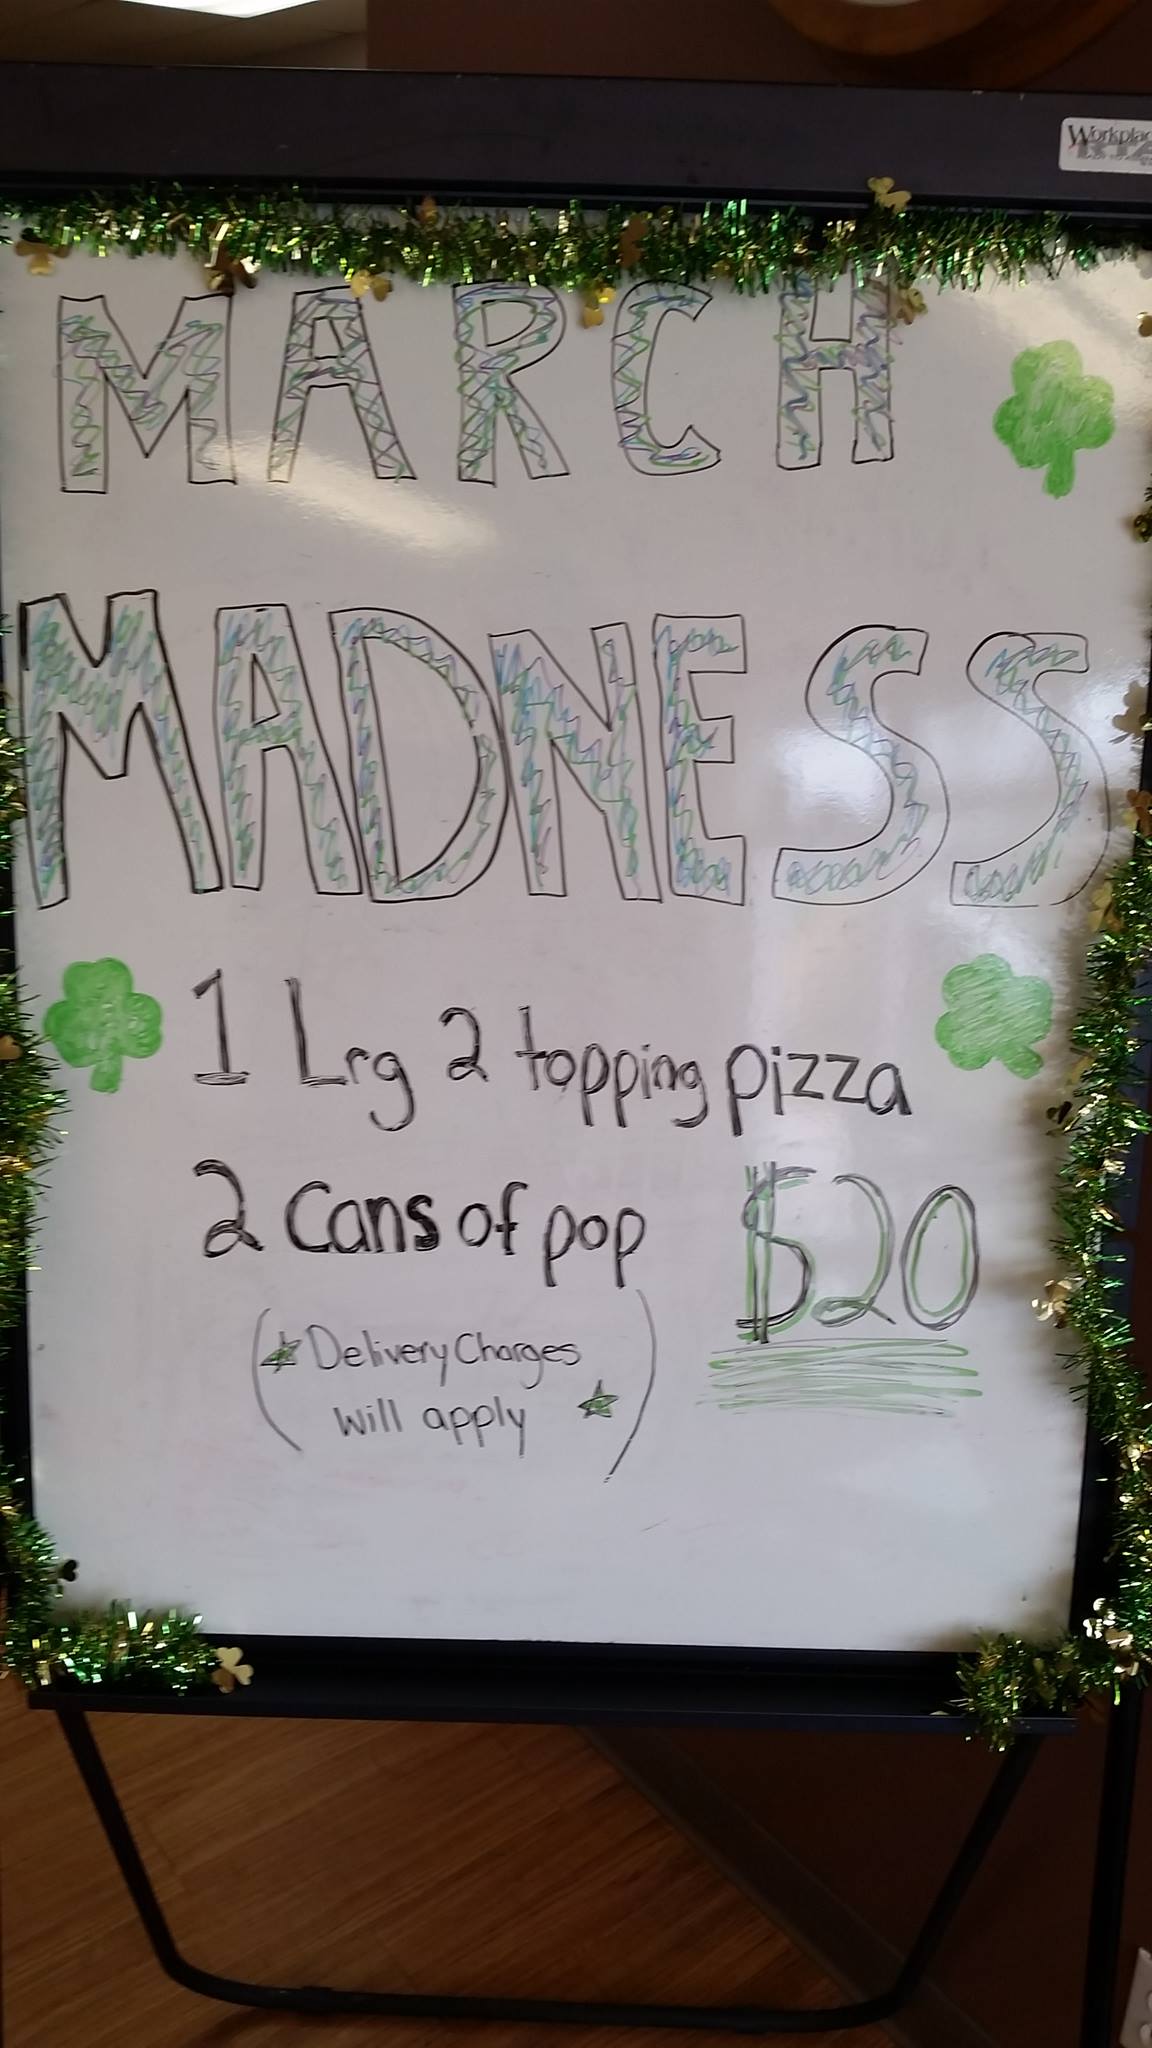 MARCH
MADNESS
1 Lrg 2 topping pizza
2 Cans of pop $20
(★ Delivery Charges
will apply ★)